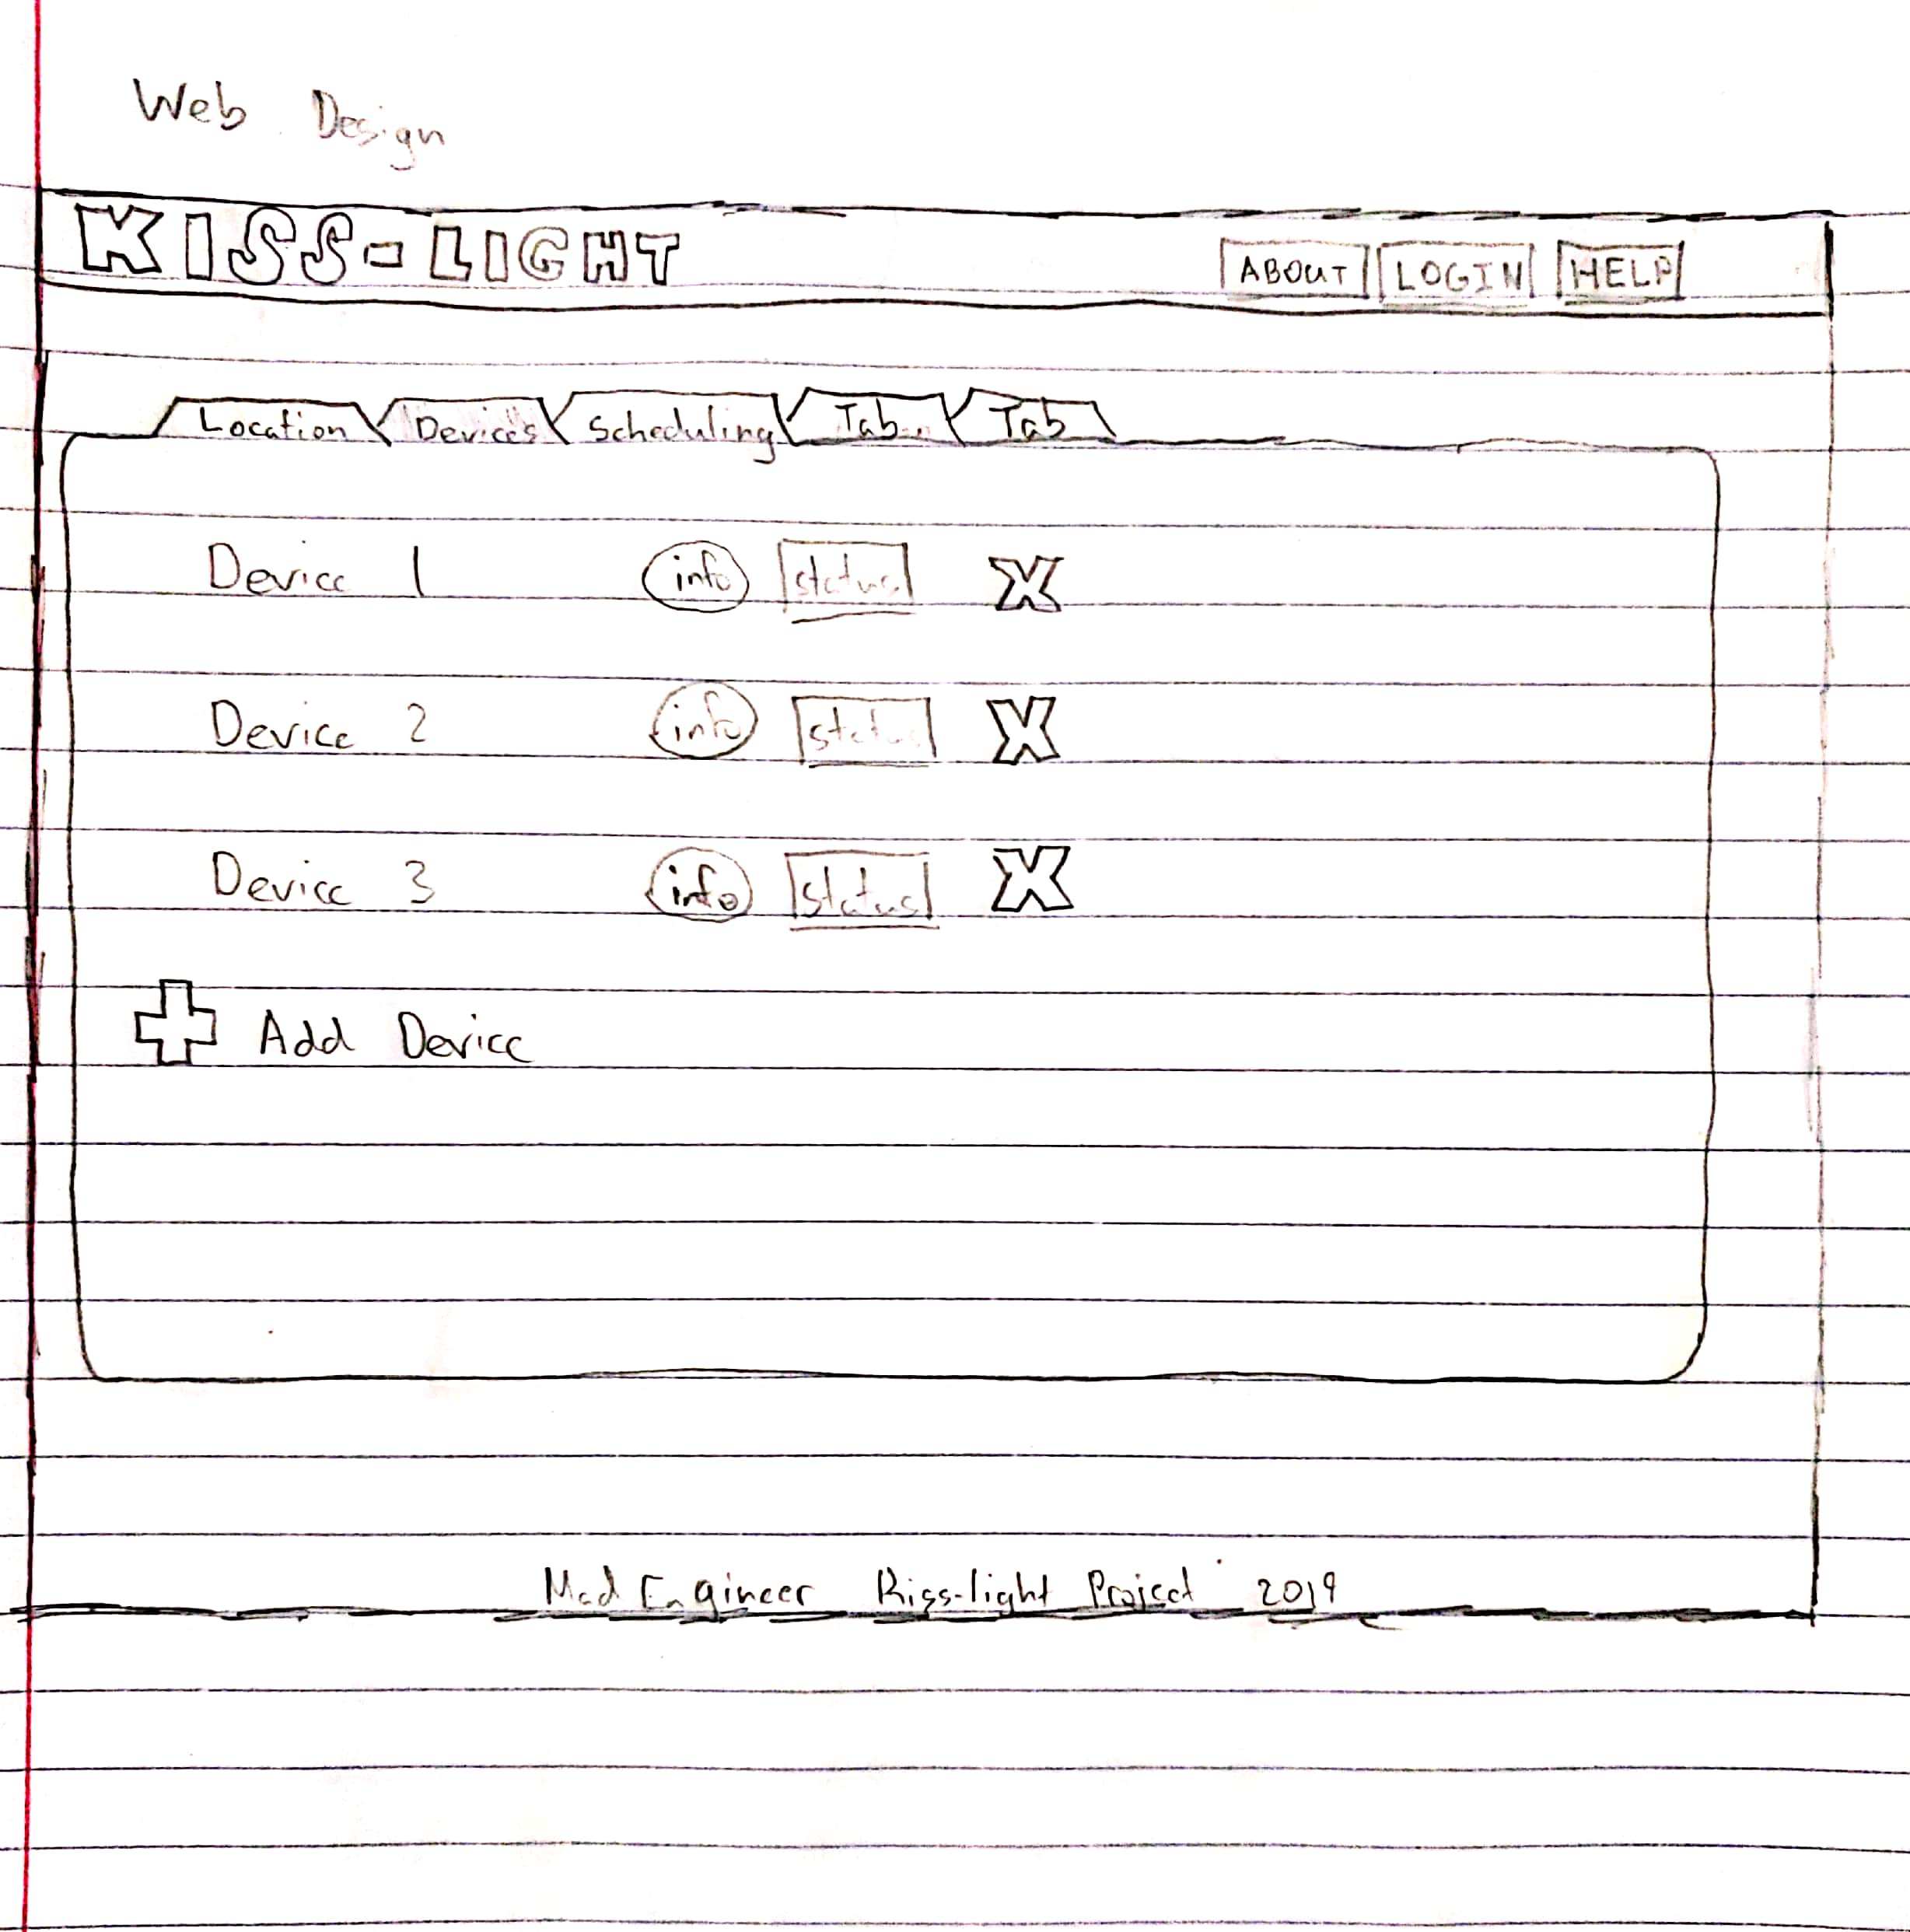 Web Design
KISS-LIGHT ABOUT LOGIN HELP
Location Devices Scheduling Tab Tab
Device 1 info status X
Device 2 info status X
Device 3 info status X
Add Device
Mad Engineer Kiss-light Project 2019